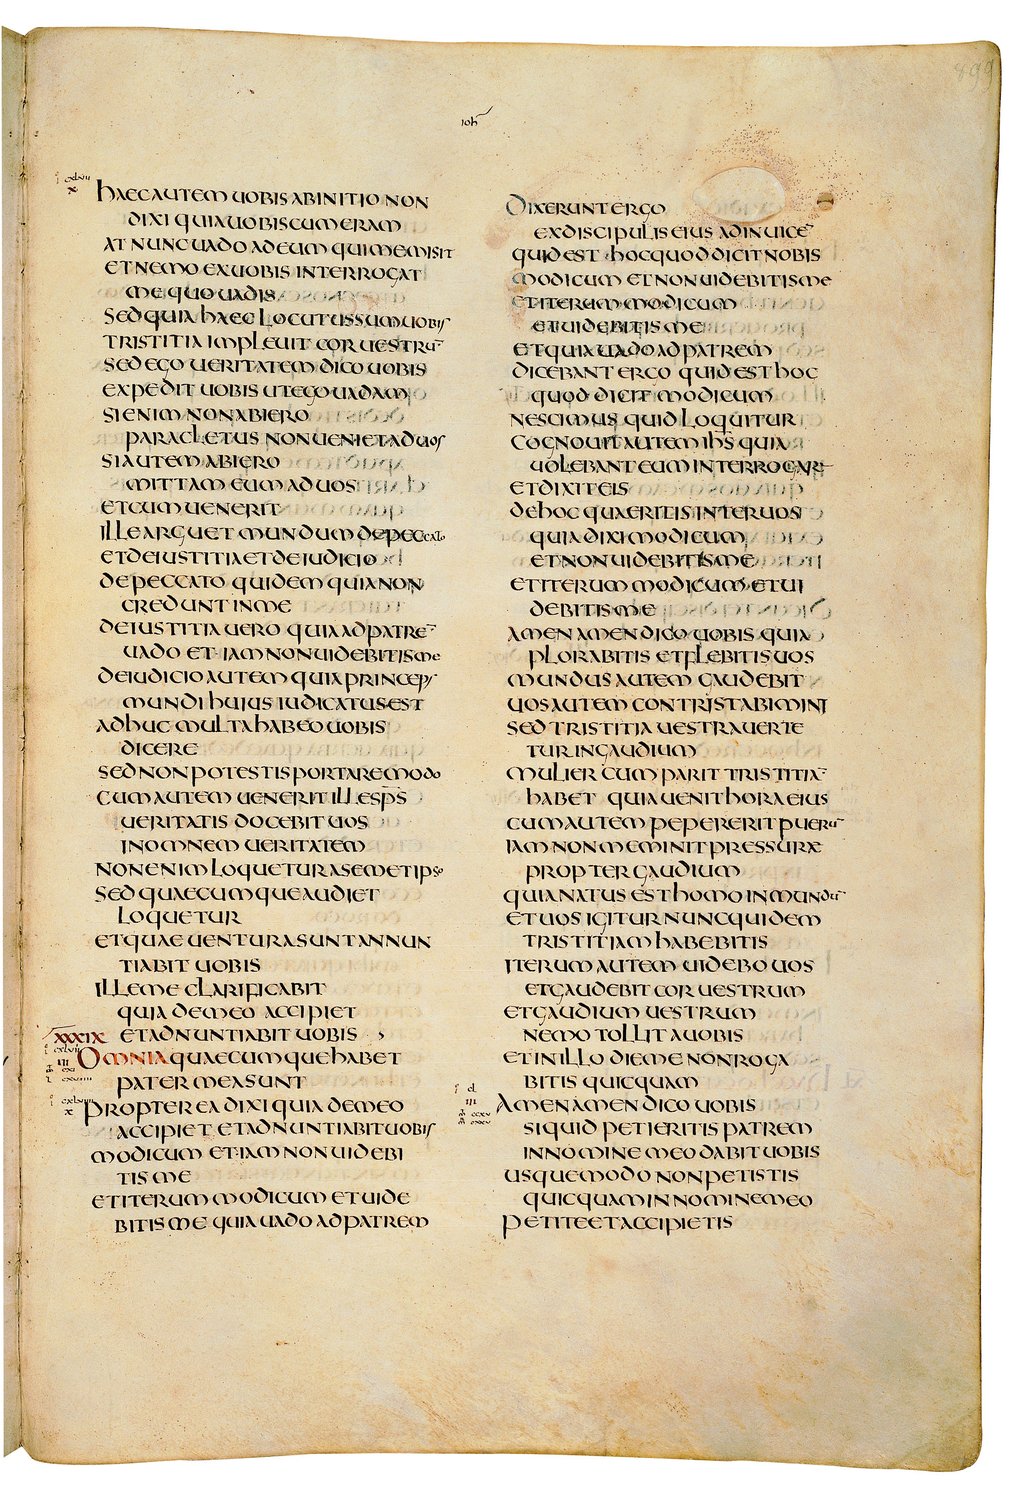 899
ioh
cxlvii
x
hAEC AUTEM UOBIS AB INITIO NON
DIXI QUIA UOBISCUM ERAM
AT NUNC UADO AD EUM QUI ME MISIT
ET NEMO EX UOBIS INTERROGAT
ME QUO UADIS
SED QUIA HAEC LOCUTUS SUM UOBIS
TRISTITIA IMPLEUIT COR UESTRŪ
SED EGO UERITATEM DICO UOBIS
EXPEDIT UOBIS UT EGO UADAM
SI ENIM NON ABIERO
PARACLETUS NON UENIET AD UOS
SI AUTEM ABIERO
MITTAM EUM AD UOS
ET CUM UENERIT
ILLE ARGUET MUNDUM DE PECCATO
ET DE IUSTITIA ET DE IUDICIO
DE PECCATO QUIDEM QUIA NON
CREDUNT IN ME
DE IUSTITIA UERO QUIA AD PATRĒ
UADO ET IAM NON UIDEBITIS ME
DE IUDICIO AUTEM QUIA PRINCEPS
MUNDI HUIUS IUDICATUS EST
ADHUC MULTA HABEO UOBIS
DICERE
SED NON POTESTIS PORTARE MODO
CUM AUTEM UENERIT ILLE SP̄S
UERITATIS DOCEBIT UOS
IN OMNEM UERITATEM
NON ENIM LOQUETUR A SEMETIPSO
SED QUAECUMQUE AUDIET
LOQUETUR
ET QUAE UENTURA SUNT ANNUN
TIABIT UOBIS
ILLE ME CLARIFICABIT
QUIA DE MEO ACCIPIET
XXXIX ET ADNUNTIABIT UOBIS
OMNIA QUAECUMQUE HABET
PATER MEA SUNT
PROPTEREA DIXI QUIA DE MEO
ACCIPIET ET ADNUNTIABIT UOBIS
MODICUM ET IAM NON UIDEBI
TIS ME
ET ITERUM MODICUM ET UIDE
BITIS ME QUIA UADO AD PATREM
DIXERUNT ERGO
EX DISCIPULIS EIUS AD INUICĒ
QUID EST HOC QUOD DICIT NOBIS
MODICUM ET NON UIDEBITIS ME
ET ITERUM MODICUM
ET UIDEBITIS ME
ET QUIA UADO AD PATREM
DICEBANT ERGO QUID EST HOC
QUOD DICIT MODICUM
NESCIMUS QUID LOQUITUR
COGNOUIT AUTEM IH̄S QUIA
UOLEBANT EUM INTERROGARE
ET DIXIT EIS
DE HOC QUAERITIS INTER UOS
QUIA DIXI MODICUM
ET NON UIDEBITIS ME
ET ITERUM MODICUM ET UI
DEBITIS ME
AMEN AMEN DICO UOBIS QUIA
PLORABITIS ET FLEBITIS UOS
MUNDUS AUTEM GAUDEBIT
UOS AUTEM CONTRISTABIMINI
SED TRISTITIA UESTRA UERTE
TUR IN GAUDIUM
MULIER CUM PARIT TRISTITIĀ
HABET QUIA UENIT HORA EIUS
CUM AUTEM PEPERERIT PUERŪ
IAM NON MEMINIT PRESSURAE
PROPTER GAUDIUM
QUIA NATUS EST HOMO IN MUNDŪ
ET UOS IGITUR NUNC QUIDEM
TRISTITIAM HABEBITIS
ITERUM AUTEM UIDEBO UOS
ET GAUDEBIT COR UESTRUM
ET GAUDIUM UESTRUM
NEMO TOLLIT A UOBIS
ET IN ILLO DIE ME NON ROGA
BITIS QUICQUAM
AMEN AMEN DICO UOBIS
SI QUID PETIERITIS PATREM
IN NOMINE MEO DABIT UOBIS
USQUE MODO NON PETISTIS
QUICQUAM IN NOMINE MEO
PETITE ET ACCIPIETIS